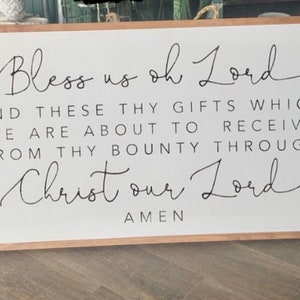 Bless us oh Lord
ND THESE THY GIFTS WHIC
E ARE ABOUT TO RECEIV
ROM THY BOUNTY THROUG
Christ our Lord
AMEN